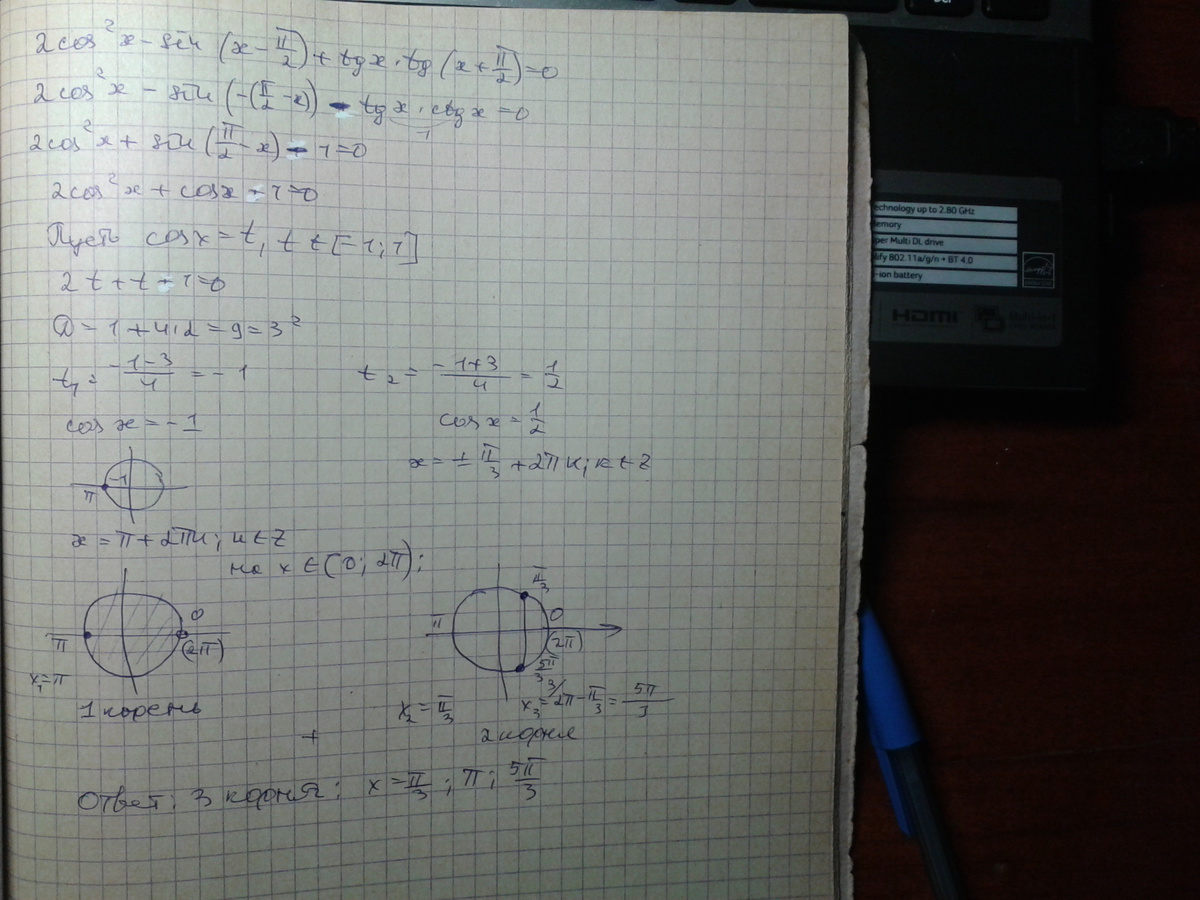 2cos²x - sin(x - π/2) + tgx · tg(x + π/2) = 0
2cos²x - sin(-(π/2 - x)) - tgx · ctgx = 0
1
2cos²x + sin(π/2 - x) - 1 = 0
2cos²x + cosx - 1 = 0
Пусть cosx = t, t ∈ [-1; 1]
2t + t - 1 = 0
D = 1 + 4·2 = 9 = 3²
t₁ = (-1-3)/4 = -1 t₂ = (-1+3)/4 = 1/2
cosx = -1 cosx = 1/2
π -1 x = ± π/3 + 2πk; k ∈ Z
x = π + 2πn; n ∈ Z
на x ∈ (0; 2π):
π 0 (2π) π π/3 0 (2π) 5π/3
x₁ = π
1 корень x₂ = π/3 x₃ = 2π - π/3 = 5π/3
+ 2 корня
Ответ: 3 корня: x = π/3; π; 5π/3
echnology up to 2.80 GHz
emory
per Multi DL drive
lify 802.11a/g/n + BT 4.0
-ion battery
HDMI